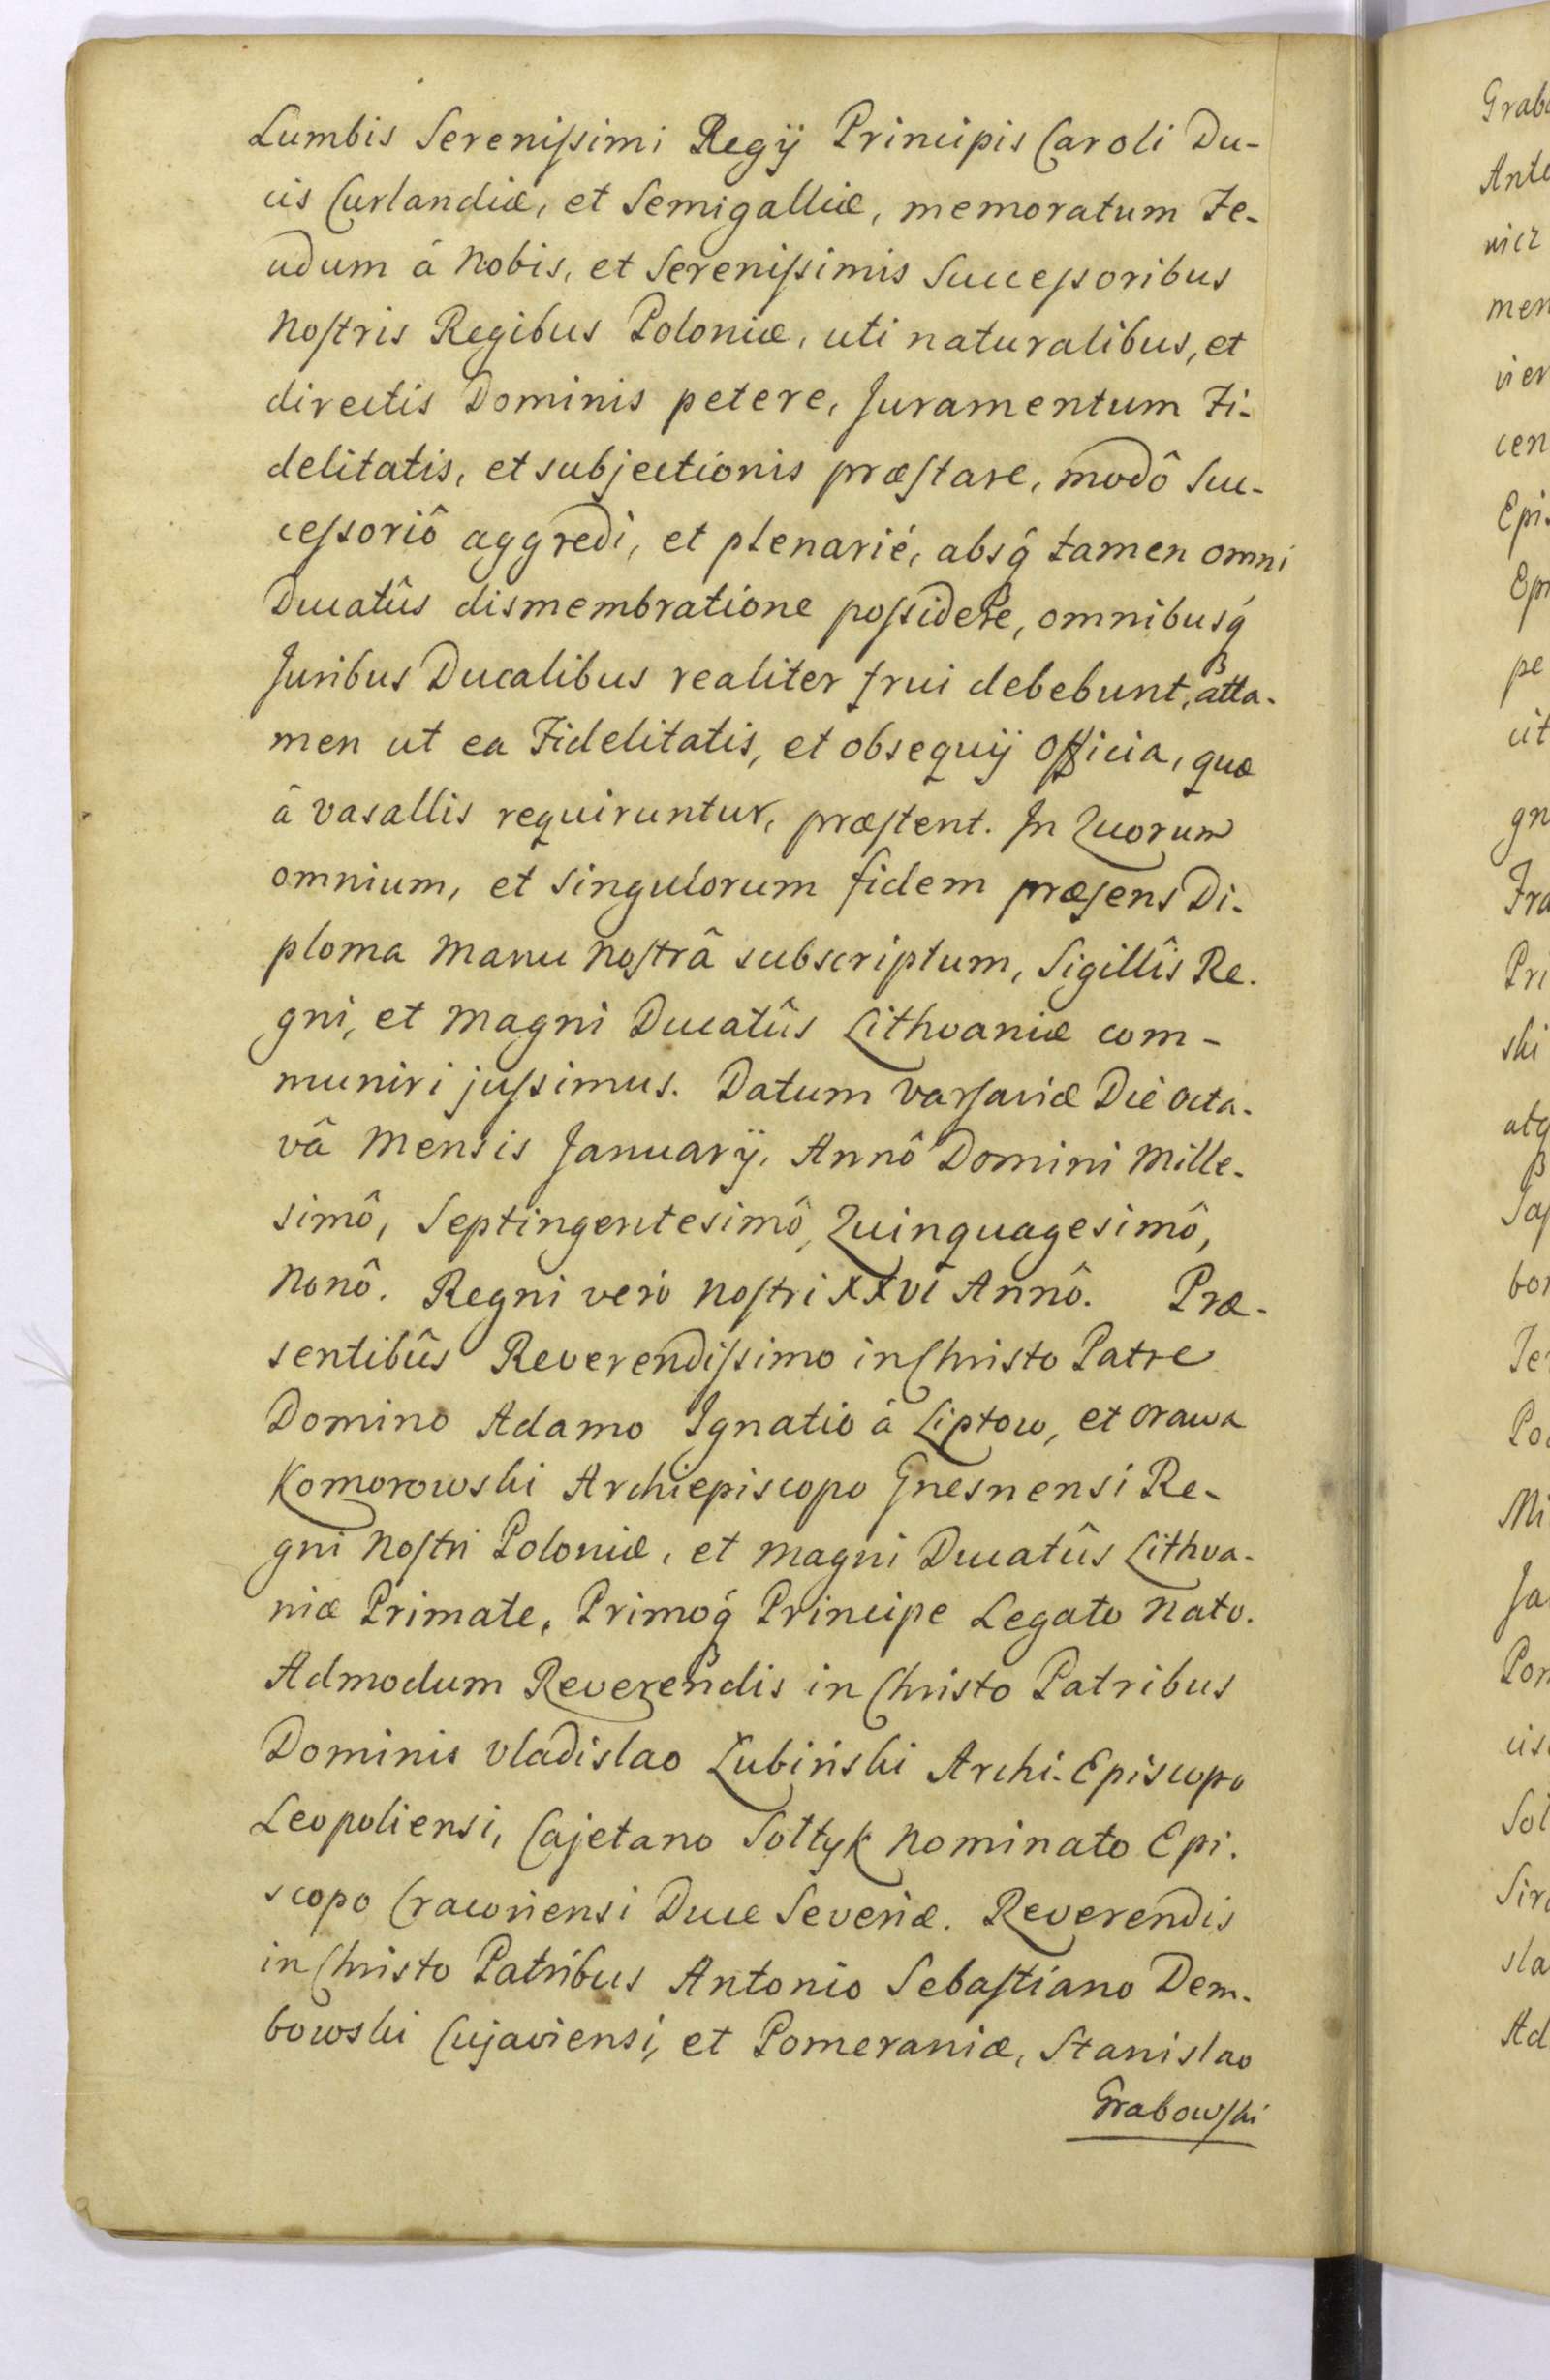 Lumbis Sereniſsimi Regÿ Principis Caroli Du-
cis Curlandiæ, et Semigalliæ, memoratum Fe-
udum â Nobis, et Sereniſsimis Succeſsoribus
Noſtris Regibus Poloniæ, uti naturalibus, et
directis Dominis petere, Juramentum Fi-
delitatis, et subjectionis præſtare, modô Suc-
ceſsoriô aggredi, et plenarié, absq́ tamen omni
Ducatûs dismembratione poſsidere, omnibusq́
Juribus Ducalibus realiter frui debebunt, atta-
men ut ea Fidelitatis, et obsequÿ Officia, quæ
â vasallis requiruntur, præſtent. In Quorum
omnium, et singulorum fidem præſens Di-
ploma Manu Noſtrâ subscriptum, Sigillîs Re-
gni, et Magni Ducatûs Lithvaniæ com-
muniri juſsimus. Datum Varſaviæ Die Octa-
vâ Mensis Januarÿ, Annô Domini Mille-
simô, Septingentesimô, Quinquagesimô,
Nonô. Regni veró Noſtri XXVI Annô. Præ-
sentibûs Reverendiſsimo in Christo Patre
Domino Adamo Ignatio â Liptow, et Orawa
Komorowski Archiepiscopo Gnesnensi Re-
gni Noſtri Poloniæ, et Magni Ducatûs Lithva-
niæ Primate, Primoq́ Principe Legato Nato.
Admodum Reverendis in Christo Patribus
Dominis Vladislao Łubiński Archi-Episcopo
Leopoliensi, Cajetano Sołtyk Nominato Epi-
scopo Cracoviensi Duce Severiæ. Reverendis
in Christo Patribus Antonio Sebaſtiano Dem-
bowski Cujaviensi, et Pomeraniæ, Stanislao
Grabowſki